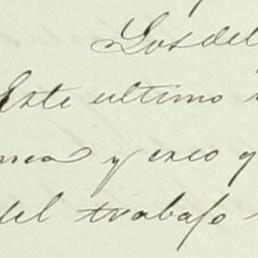 Los del
Este ultimo
y creo q
del trabajo